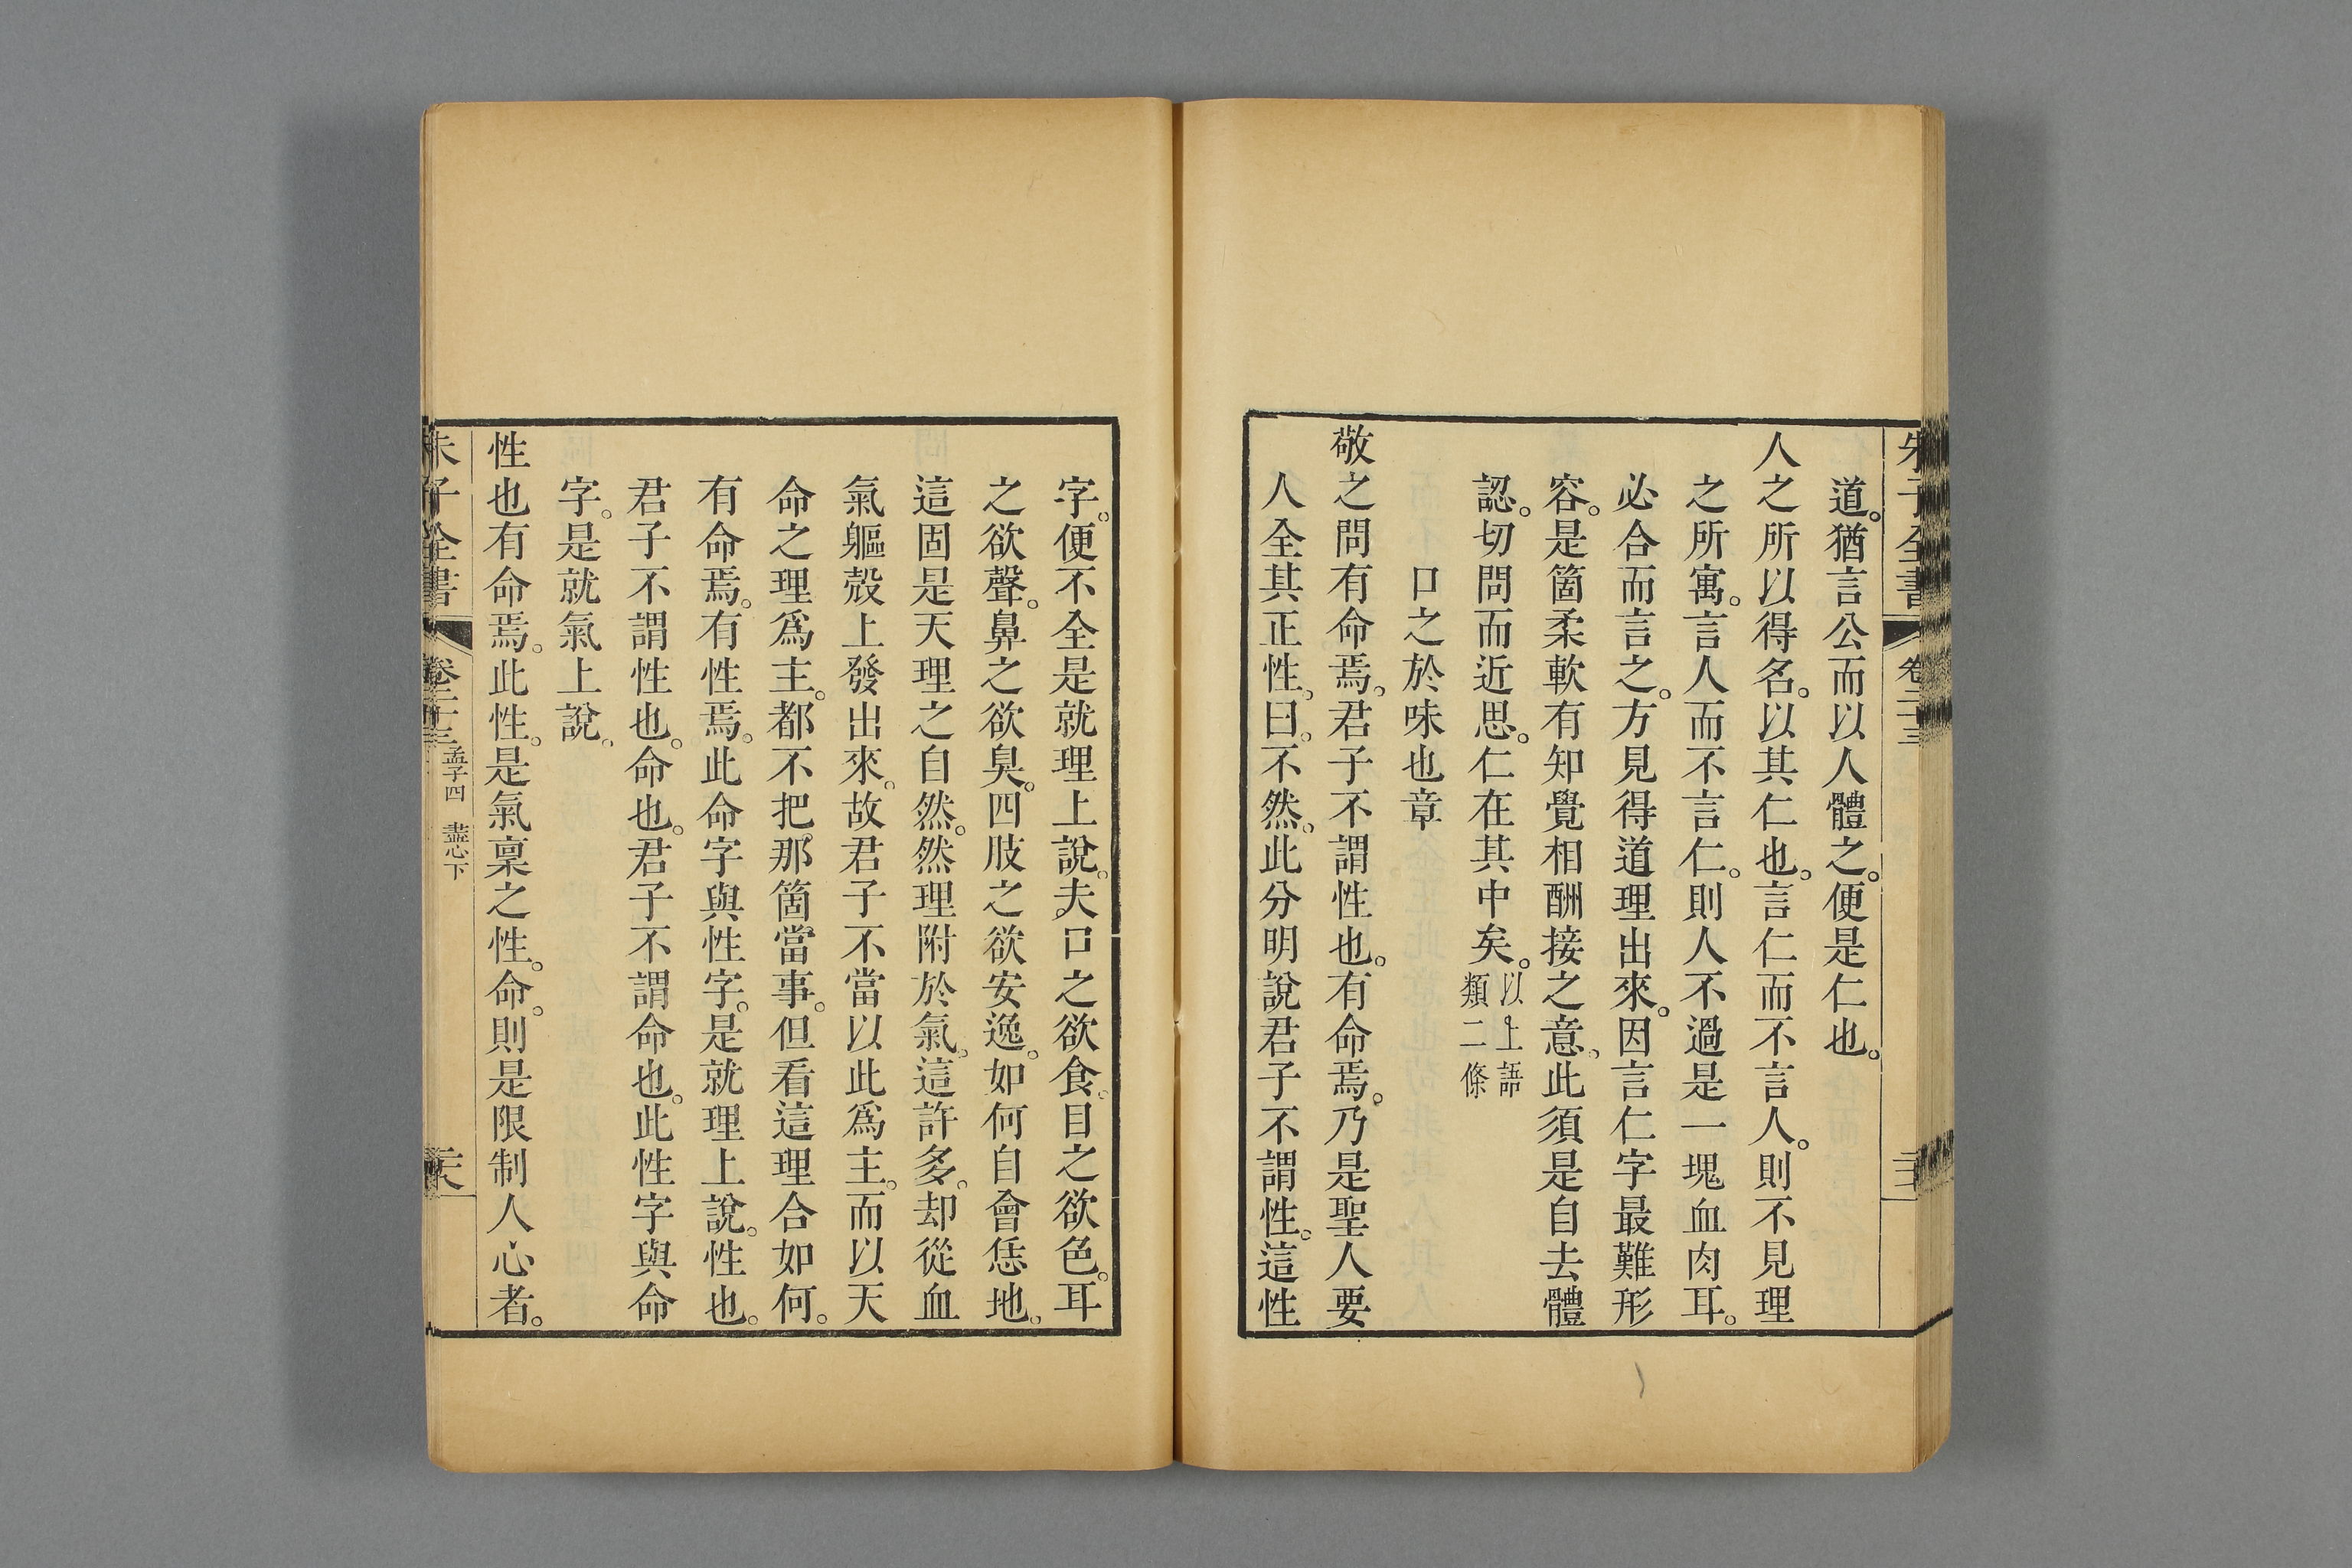 朱子全書 卷二十三
道。猶言公而以人體之。便是仁也。
人之所以得名。以其仁也。言仁而不言人。則不見理
之所寓。言人而不言仁。則人不過是一塊血肉耳。
必合而言之。方見得道理出來。因言仁字最難形
容。是箇柔軟有知覺相酬接之意。此須是自去體
認。切問而近思。仁在其中矣。以上語
類二條
口之於味也章
敬之問有命焉。君子不謂性也。有命焉。乃是聖人要
人全其正性。曰。不然。此分明說君子不謂性。這性
字。便不全是就理上說。夫口之欲食。目之欲色。耳
之欲聲。鼻之欲臭。四肢之欲安逸。如何自會恁地。
這固是天理之自然。然理附於氣。這許多。却從血
氣軀殼上發出來。故君子不當以此爲主。而以天
命之理爲主。都不把那箇當事。但看這理合如何。
有命焉。有性焉。此命字與性字。是就理上說。性也。
君子不謂性也。命也。君子不謂命也。此性字與命
字。是就氣上說。
性也有命焉。此性。是氣稟之性。命。則是限制人心者。
朱子全書 卷二十三 孟子四 盡心下